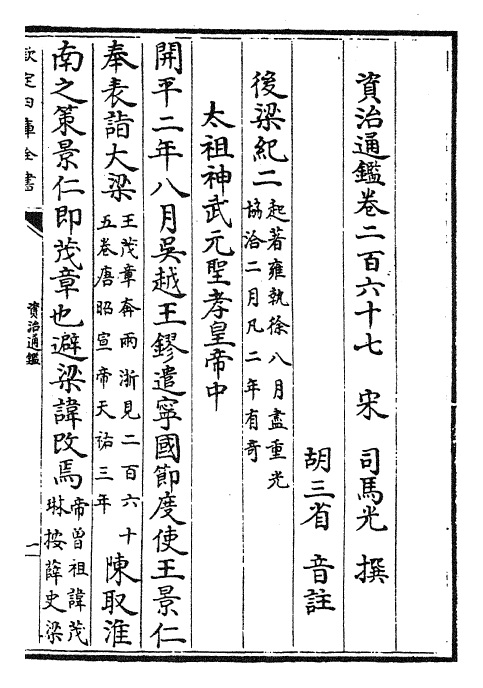 資治通鑑卷二百六十七　宋　司馬光　撰
胡三省　音註
後梁紀二起著雍執徐八月盡重光
協洽二月凡二年有奇
太祖神武元聖孝皇帝中
開平二年八月吳越王鏐遣寧國節度使王景仁
奉表詣大梁王茂章奔兩浙見二百六十
五卷唐昭宣帝天祐三年陳取淮
南之策景仁即茂章也避梁諱改焉帝曾祖諱茂
琳按薛史梁
欽定四庫全書
資治通鑑
一